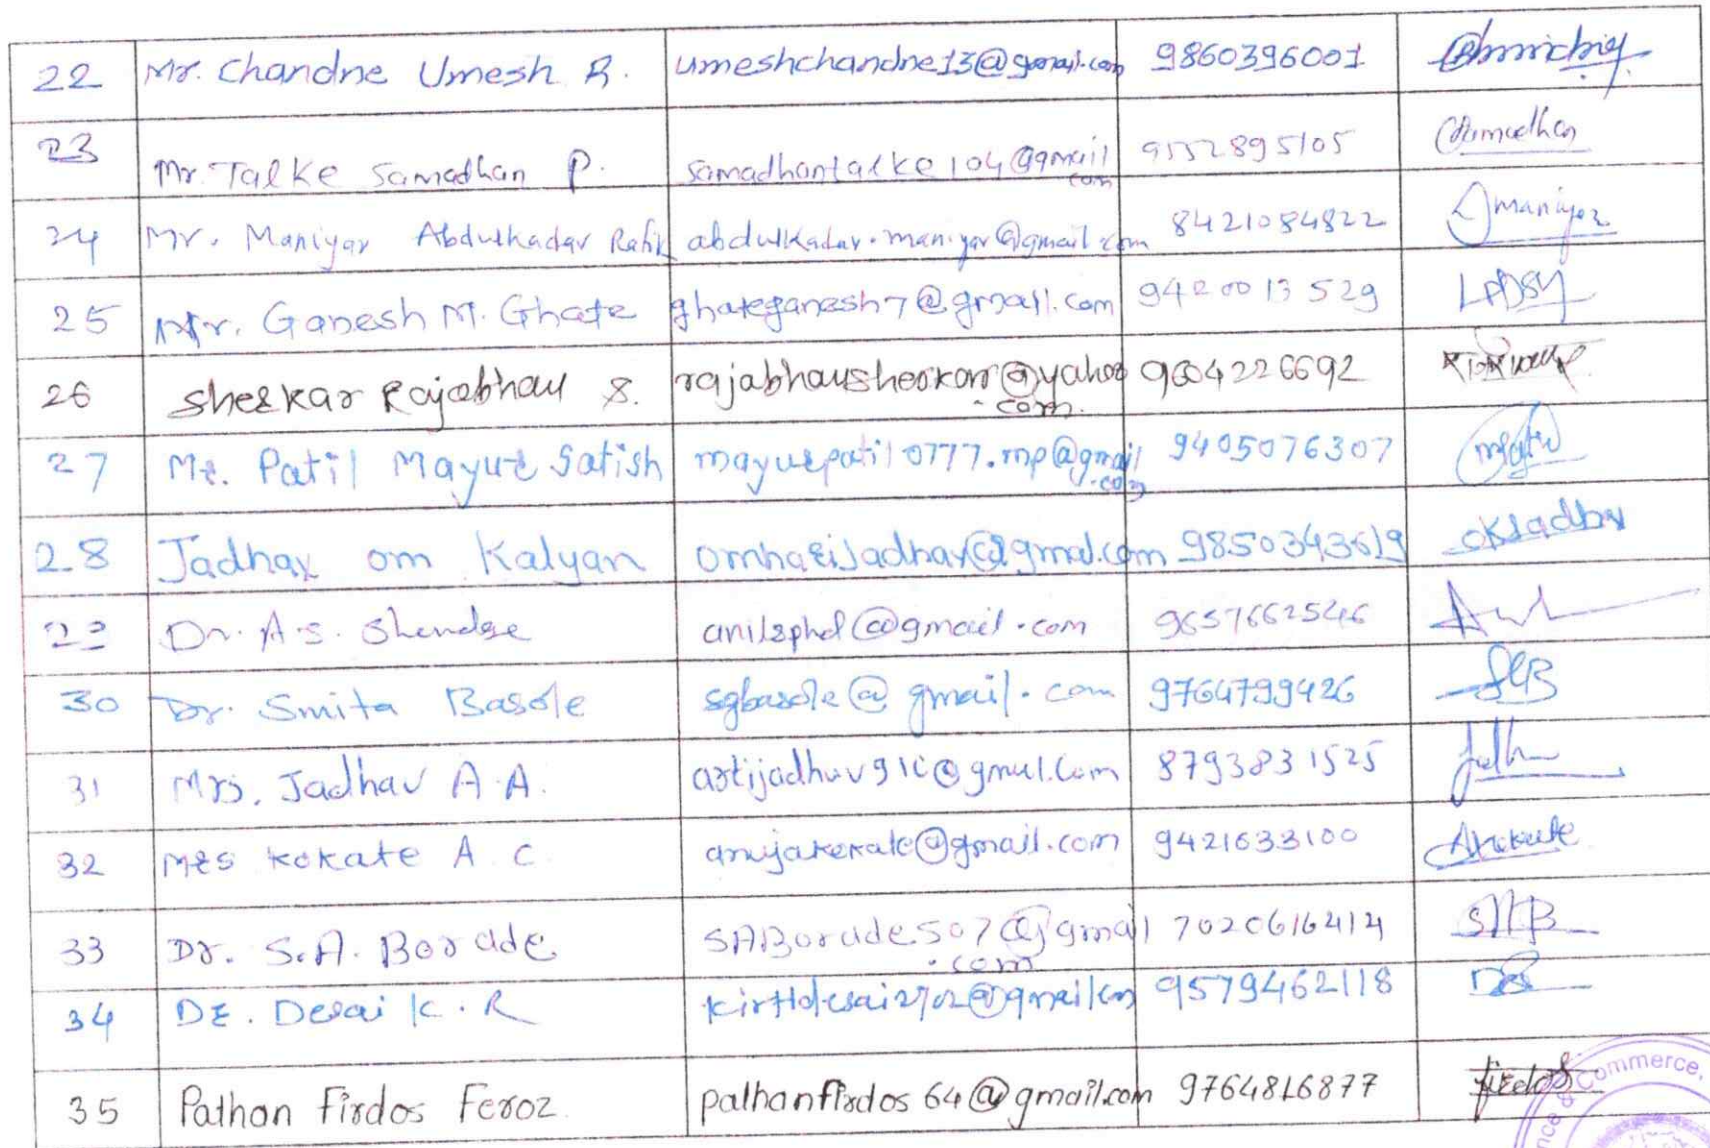 22 Mr. Chandne Umesh R. umeshchandne13@gmail.com 9860396001
23 Mr. Talke Samadhan P. samadhantalke104@gmail 9552895105
com
24 Mr. Maniyar Abdulkadar Rafik abdulkadar.maniyar@gmail.com 8421084822 maniyar
25 Mr. Ganesh M. Ghate ghateganesh7@gmail.com 9420013529
26 Sherkar Rajabhau S. rajabhausherkar@yahoo 9604226692
.com
27 Mr. Patil Mayur Satish mayurpatil0777.mp@gmail 9405076307
.com
28 Jadhav om Kalyan omharijadhav@gmal.com 9850343619 okjadhav
29 Dr. A.S. Shendge anilsphd@gmail.com 9657662546
30 Dr. Smita Basole sgbasole@gmail.com 9764799426
31 Mrs. Jadhav A.A. 8793831525
32 Mrs Kokate A.C. 9421633100
33 Dr. S.A. Borade SABorade507@gmail 7020616414 SAB
.com
34 Dr. Desai K.R 9579462118
35 Pathan Firdos Feroz pathanfirdos64@gmail.com 9764816877 firdos
Commerce,